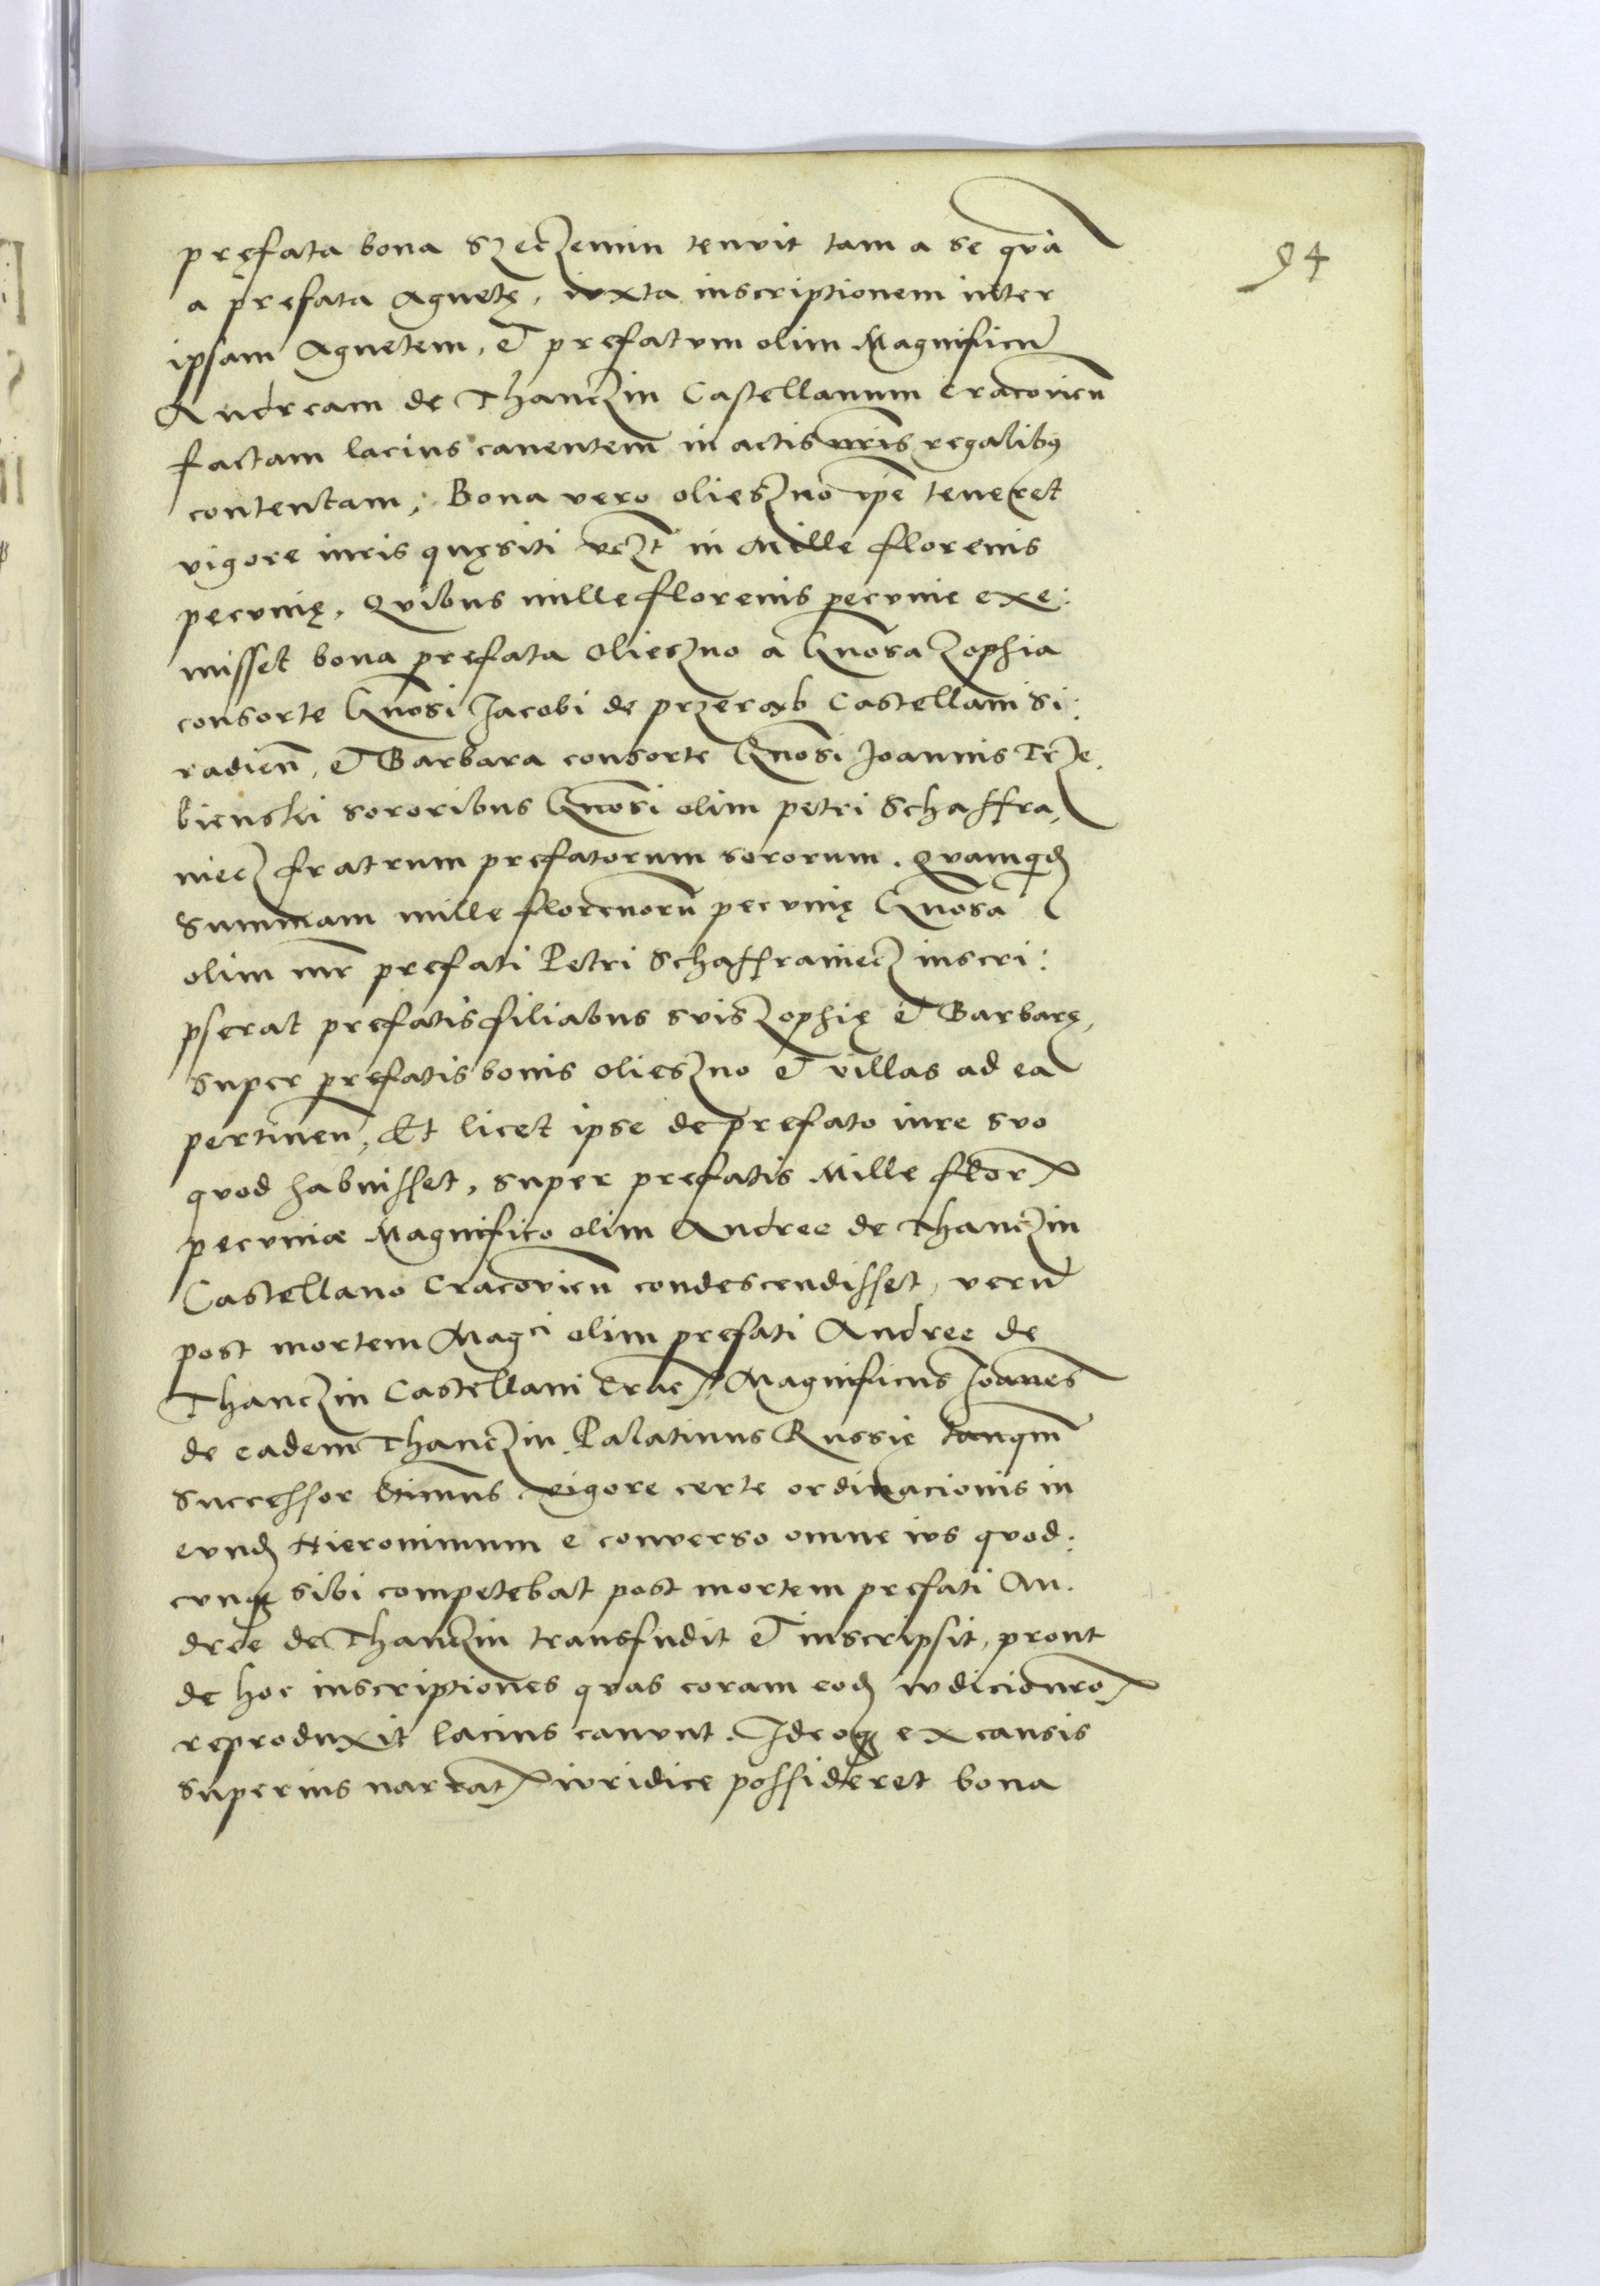 94
pręfata bona Szeczemin tenuit tam a se quā
a prefata Agnetę, iuxta inscriptionem inter
ipsam Agnetem, et prefatum olim Magnificū
Andream de Thanczin Castellanum Cracovieñ
factam lacius canentem in actis nr̄is regalibus
contentam; Bona vero olieszno ip̄e teneret
vigore iuris quęsiti vczt in Mille florenis
pecunię, Quibus mille florenis pecunie exe:
misset bona prefata Olieszno a Gnōsa Zophia
consorte Gnōsi Jacobi de przeramb Castellani Si:
radieñ, et Barbara consorte Gnōsi Joannis Trze,
bienski sororibus Gnōsi olim petri Schaffra,
niecz fratrum prefatorum sororum. Quamqd
Summam mille florenorū pecunię Gnōsa
olim mr̄ prefati Petri Schaffraniecz inscri:
pserat prefatis filiabus suis Zophię et Barbarę,
super prefatis bonis Olieszno et villas ad ea
pertineñ, Et licet ipse de prefato iure suo
quod habuisset, super prefatis Mille flor
pecuniæ Magnifico olim Andree de Thanczin
Castellano Cracovieñ condescendisset, verū
post mortem Magci olim prefati Andree de
Thanczin Castellani Crac Magnificus Joānes
de eadem Thanczin Palatinus Russię tanqm̄
Successor ltimus vigore certe ordinacionis in
eund Hieronimum e converso omne ius quod:
cunq sibi competebat post mortem prefati An.
dree de Thanczin transfudit et inscripsit, prout
de hoc inscriptiones quas coram eod iudicio nr̄o
reproduxit lacius canunt. Ideoq ex causis
superius narrat iuridice possideret bona